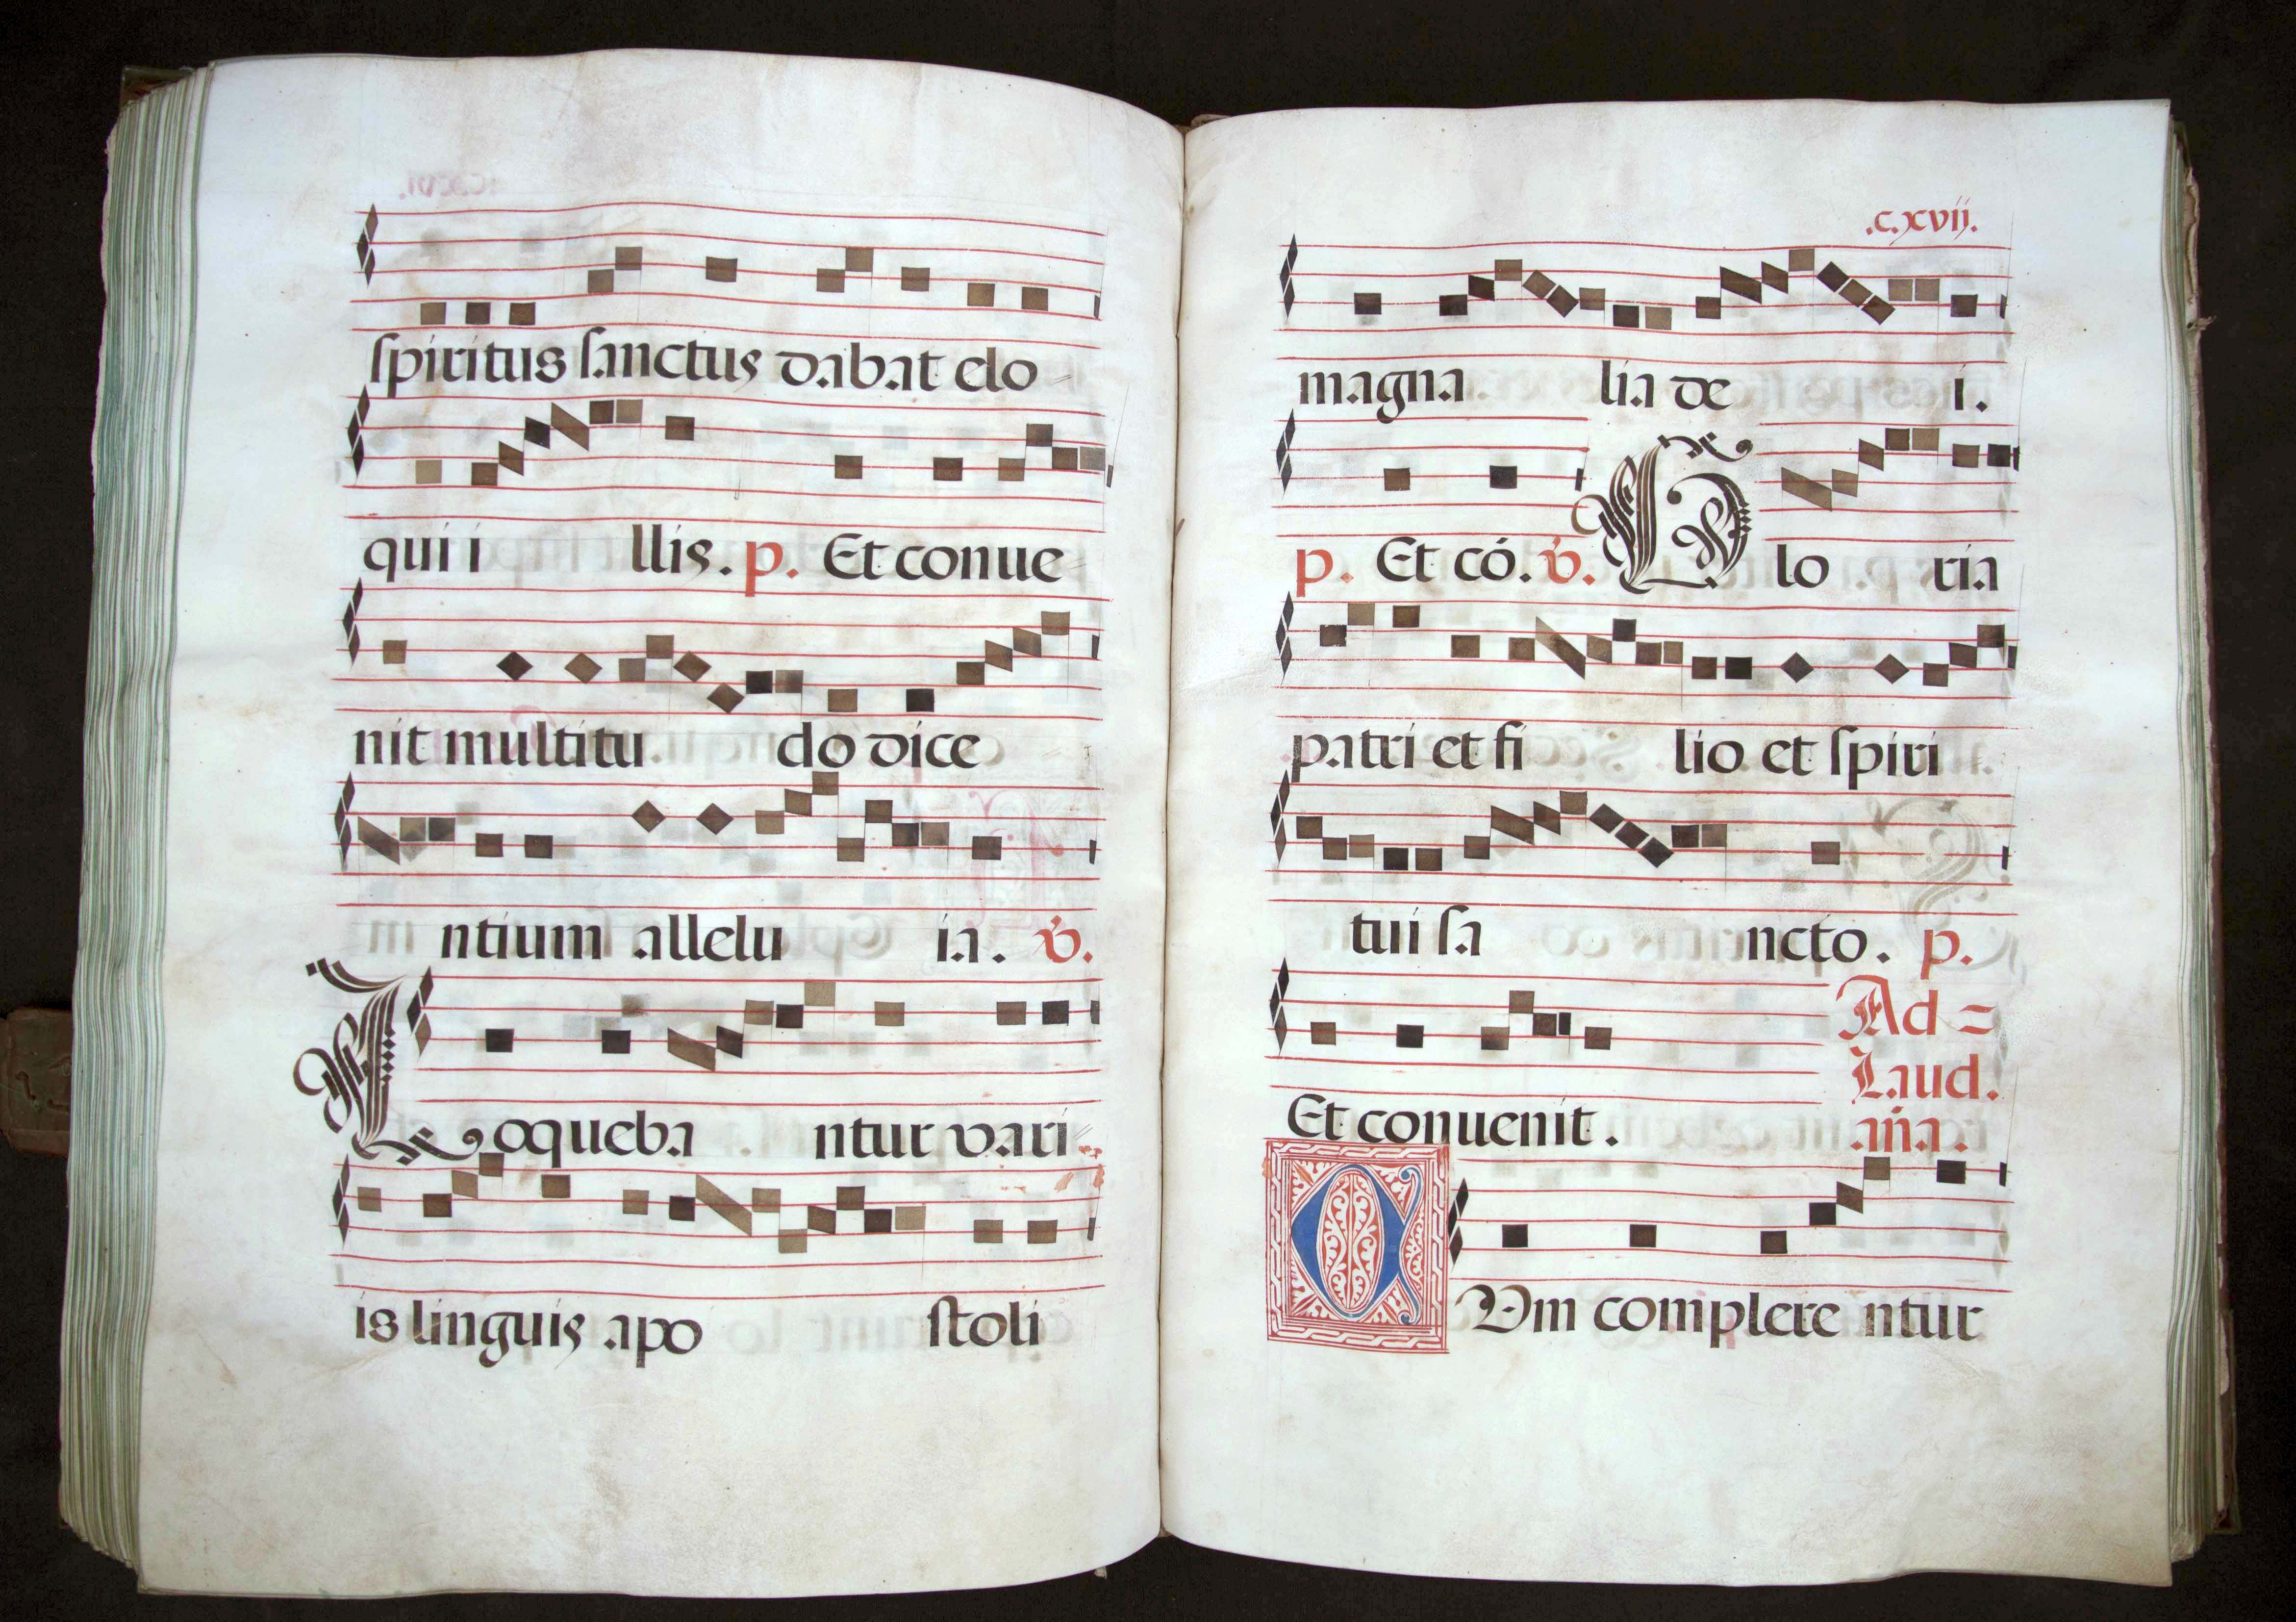 spiritus sanctus dabat elo
qui i llis. p. Et conue
nit multitu do dice
ntium allelu ia. v.
Loqueba ntur vari
is linguis apo stoli
.c.xvii.
magna lia de i.
p. Et có. v. Glo ria
patri et fi lio et spiri
tui sa ncto. p.
Ad =
Laud.
Et conuenit. añа.
CVm complere ntur